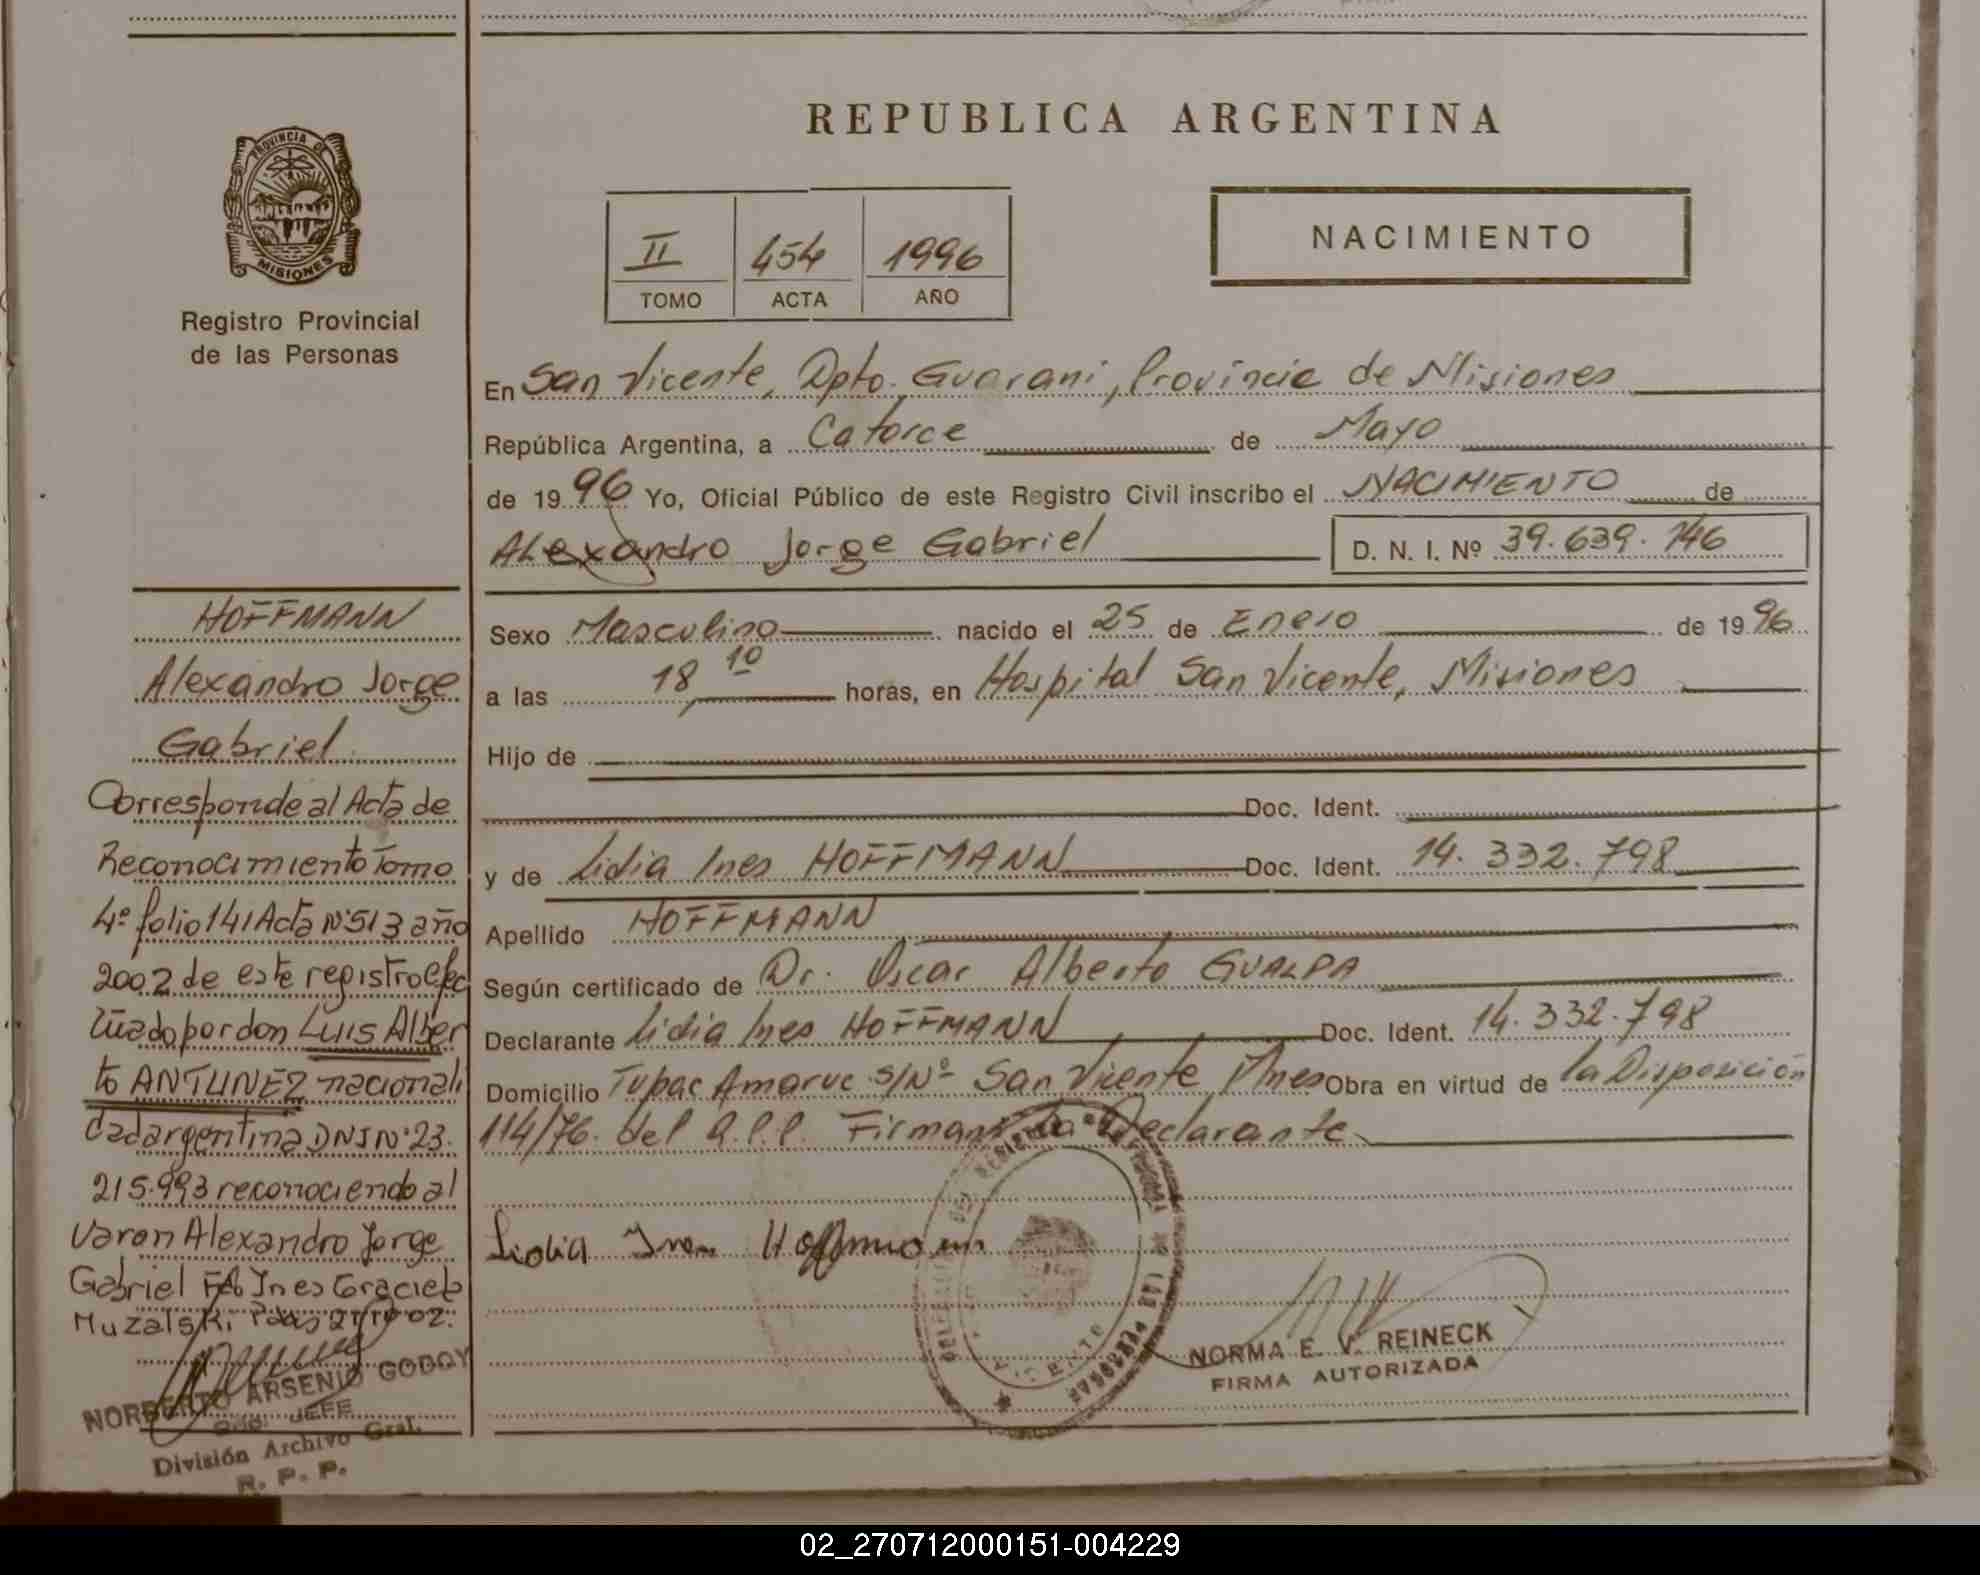 REPUBLICA ARGENTINA
PROVINCIA DE
MISIONES
Registro Provincial
de las Personas
II 454 1996
TOMO ACTA AÑO
NACIMIENTO
En San Vicente, Dpto. Guarani, Provincia de Misiones
República Argentina, a Catorce de Mayo
de 1996 Yo, Oficial Público de este Registro Civil inscribo el NACIMIENTO de
Alexandro Jorge Gabriel D. N. I. Nº 39.639.746
Sexo Masculino nacido el 25 de Enero de 1996
a las 18,10 horas, en Hospital San Vicente, Misiones
Hijo de
Doc. Ident.
y de Lidia Ines HOFFMANN Doc. Ident. 14.332.798
Apellido HOFFMANN
Según certificado de Dr. Oscar Alberto GUALPA
Declarante Lidia Ines HOFFMANN Doc. Ident. 14.332.798
Domicilio Tupac Amaruc S/Nº San Vicente Mnes Obra en virtud de la Disposición
114/76. del R.P.P. Firmando la Declarante
Lidia
NORMA E. V. REINECK
FIRMA AUTORIZADA
VICENTE
HOFFMANN
Alexandro Jorge
Gabriel
Corresponde al Acta de
Reconocimiento Tomo
4º folio 141 Acta Nº 513 año
2002 de este registro efec
tuado por don LUIS Alber
to ANTUNEZ nacionali
dad argentina DNI Nº 23.
215.993 reconociendo al
varon Alexandro Jorge
Gabriel Fdo Ines Graciela
Muzalski
NORBERTO ARSENIO GODOY
JEFE
División Archivo Gral.
R. P. P.
02_270712000151-004229